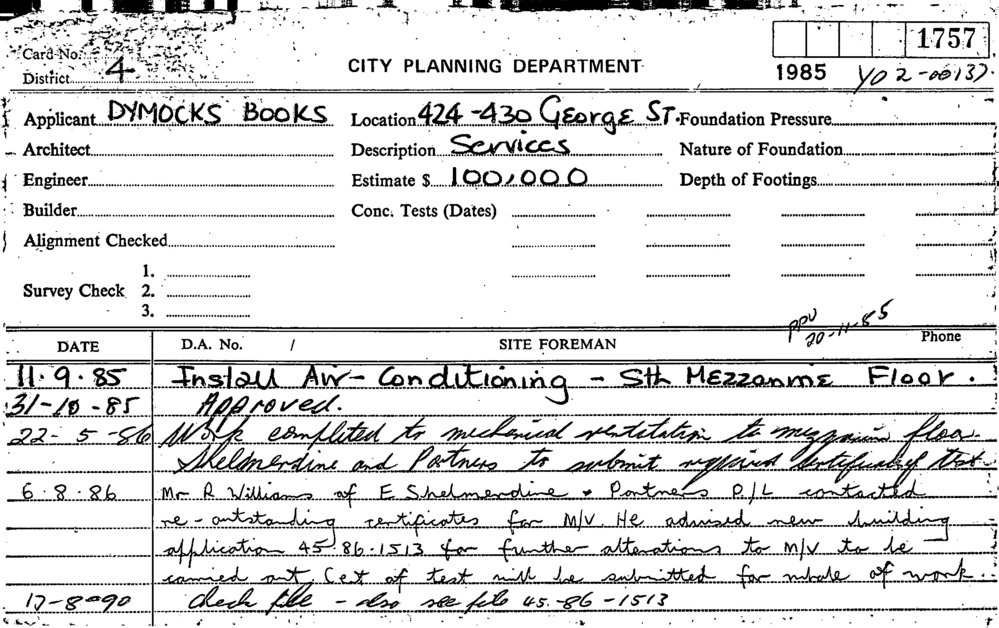 Card No.
1757
District 4
CITY PLANNING DEPARTMENT
1985 Y02-00137
Applicant DYMOCKS BOOKS Location 424-430 George ST. Foundation Pressure
Architect Description Services Nature of Foundation
Engineer Estimate $ 100,000 Depth of Footings
Builder Conc. Tests (Dates)
Alignment Checked
1.
Survey Check 2.
3.
PPU 20-11-85
DATE D.A. No. / SITE FOREMAN Phone
11.9.85 Install Air-Conditioning - Sth Mezzanine Floor.
31-10-85 Approved.
22-5-86 Work completed to mechanical ventilation to mezzanine floor.
Shelmerdine and Partners to submit required Certificate of Test.
6.8.86 Mr R Williams of E Shelmerdine & Partners P/L contacted
re-outstanding certificates for M/V. He advised new building
application 45.86.1513 for further alterations to M/V to be
carried out. Cert of test will be submitted for whole of work.
17-8-90 Check file - also see file 45-86-1513